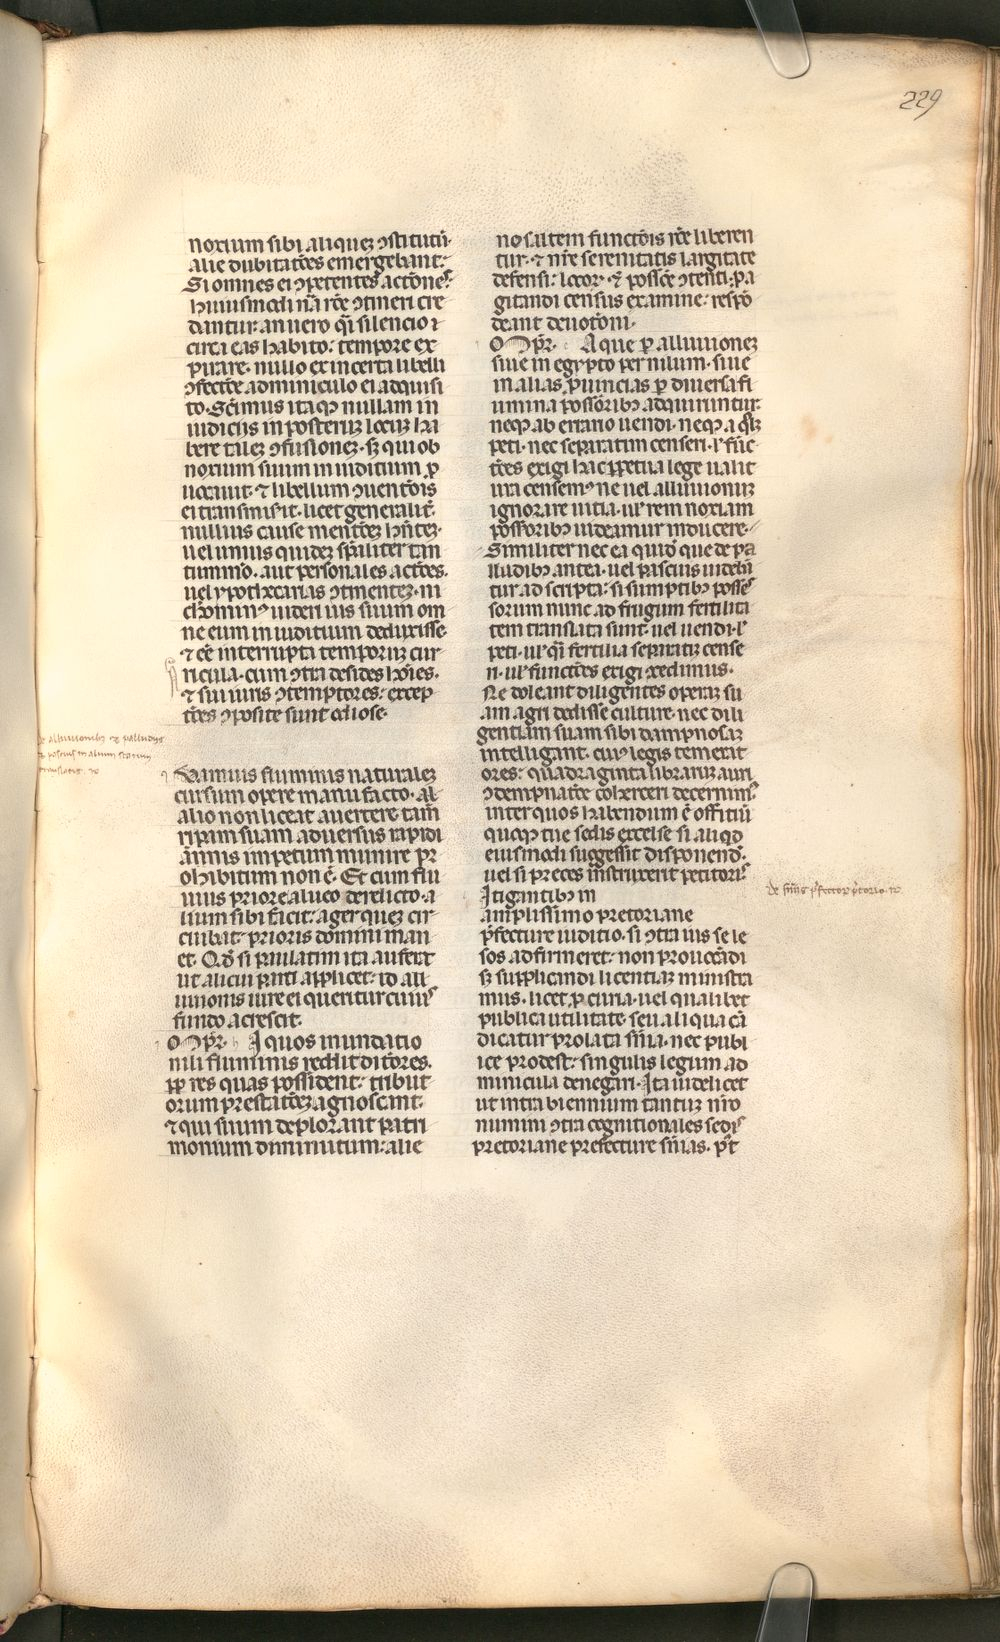 229
noxium sibi aliquez ꝯstitutū·
alie dubitatōes emergebant:
Si omnes ei ꝯpetentes actōnes
huiusmodi nā rōe ꝯtineri cre
dantur: an uero qi silencio ⁊
circa eas habito: tempore ex
pirare· nullo ex incerta libelli
ꝯfectōe adminiculo ei adquisi
to· Scimus itaqꝫ nullam in
iudiciis in posterius locuꝫ ha
bere talez ꝯfusionez· sꝫ qui ob
noxium suum in iuditium ꝓ
uocauit· ⁊ libellum ꝯuentōis
ei transmisit· licet generalit̄·
nullius cause mentōez hn̄tez·
uel unius quidez spāliter tan
tummō· aut personales actōes·
uel ypothecarias ꝯtinentez· ni
chominꝰ uideri ius suum om
ne eum in iuditium deduxisse·
⁊ eē interrupta temporuꝫ cur
ricula· cum ꝯtra desides hōies·
⁊ sui iuris ꝯtemptores: excep
tōes ꝯposite sunt odiose·
de alluuionibꝫ ⁊ palludibꝫ
⁊ pascuis in alium statum
translatis· ℞
Quamuis fluminis naturalez
cursum opere manu facto· al
alio non liceat auertere: tam̄
ripam suam aduersus rapidi
amnis impetum munire pr
ohibitum non ē· Et cum flu
uius priore alueo derelicto· a
lium sibi facit: ager quez cir
cuibat· prioris domini man
et· Qđ si paulatim ita aufert
ut alicui parti applicet: id all
uuionis iure ei queritur cuius
fundo acrescit·
O ꝑꝑr· Ii quos inundatio
nili fluminis reddit ditōres·
ꝓp res quas possident: tribut
orum prestatōez agnoscant·
⁊ qui suum deplorant patri
monium diminutum: alie
no saltem functōis rōe liberen
tur· ⁊ nr̄e serenitatis largitate
defensi: locor· ⁊ possōe ꝯtenti: pa
gitandi census examine: respō
deant deuotōni·
O ꝑꝑr· A que ꝑ alluuionez
siue in egypto per nilum· siue
in alias ꝓuincias ꝑ diuersa fl
umina possōribꝫ adquiruntur·
neqꝫ ab errario uendi· neqꝫ a qꝫ
peti· nec separatim censeri· ł func
tōes exigi hac ꝑpetua lege ualit
ura censemꝰ ne uel alluuionuꝫ
ignorare uitia· uł rem noxiam
possōribꝫ uideamur inducere·
Similiter nec ea quidē que de pa
lludibꝫ antea· uel pascuis uideba
tur adscripta: si sumptibꝫ posses
sorum nunc ad frugum fertilita
tem translata sunt· uel uendi· ł
peti· uł qi fertilia separatiꝫ cense
ri· uł functōes exigi ꝯcedimus·
Ne doleant diligentes operaꝫ su
am agri dedisse culture· nec dili
gentiam suam sibi dampnosaꝫ
intelligant· cuiꝰ legis temerat
ores: quadraginta libraruꝫ auri
ꝯdempnatōe coherceri decernimꝰ
inter quos habendum ē offitiū
quoqꝫ tue sedis excelse si aliqđ
eiusmodi suggessit disponendō·
uel si preces instruxerit petitoris
Itigantibꝫ in
amplissimo pretoriane
p̄fecture iuditio· si ꝯtra ius se le
sos adfirmeret: non prouocādi
sꝫ supplicandi licentiaꝫ ministra
mus· licet ꝑ curia· uel qualibet
publica utilitate· seu aliqua cā
dicatur prolata sn̄ia· nec publi
ice prodest: singulis legum ad
minicula denegari· Ita uidelicet
ut intra biennium tantuꝫ nr̄o
numini ꝯtra cognitionales sedis
pretoriane prefecture sn̄ias· pꝰt
de sn̄iis p̄fectorꝫ p̄torio· ℞